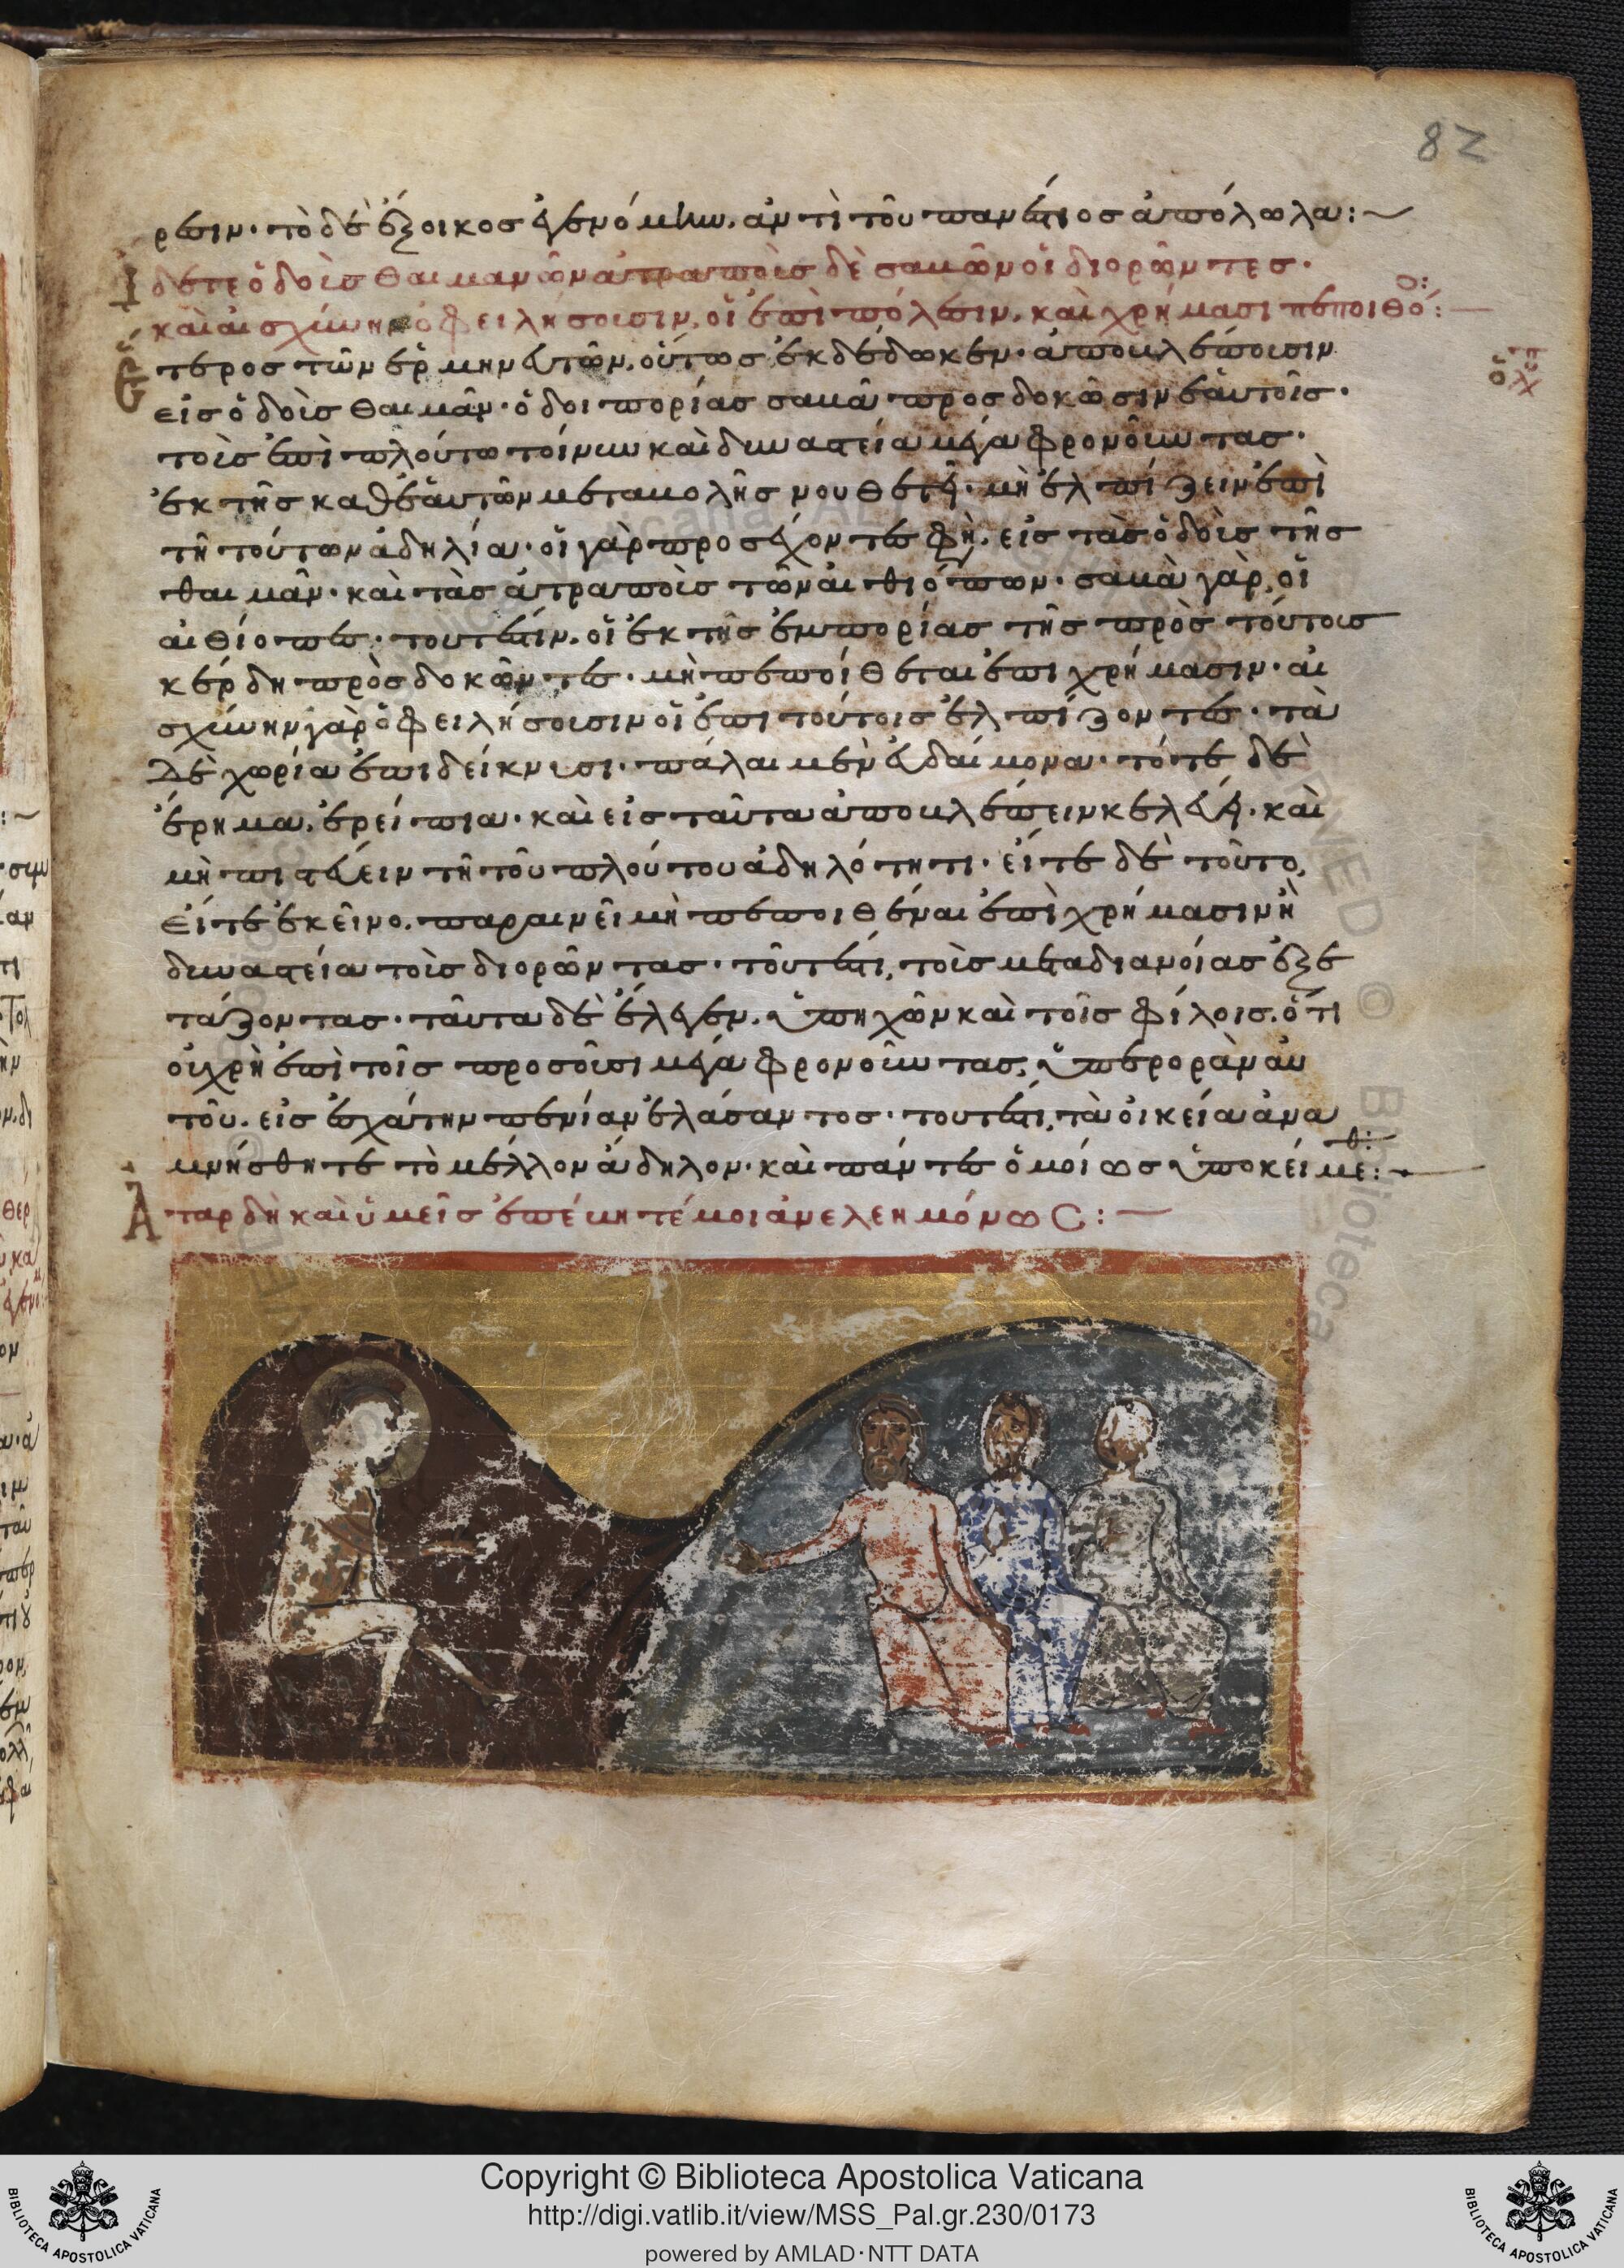 82
ρεσιν· τὸ δὲ ἔξοικος ἐγενόμην, ἀντὶ τοῦ παντὸς ἀπόλωλα:~
Ἴδετε ὁδοὺς Θαιμανῶν ἀτραποὺς δὲ σαβῶν οἱ διορῶντες·
καὶ αἰσχύνην ὀφειλήσουσιν, οἱ ἐπὶ πόλεσιν, καὶ χρήμασι πεποιθό:—
Ἕτερος τῶν ἑρμηνευτῶν, οὕτως ἐκδέδωκεν· ἀποβλέπουσιν
εἰς ὁδοὺς θαιμὰν· ὁδοιπορίας σαβᾶ προσδοκῶσιν ἑαυτοῖς·
τοὺς ἐπὶ πλούτω τοίνυν καὶ δυναστεία μέγα φρονοῦντας·
ἐκ τῆς καθ' ἑαυτὸν μεταβολῆς νουθετεῖ· μὴ ἐλπίζειν ἐπὶ
τῆ τούτων ἀδηλία· οἱ γὰρ προσέχοντες φὴ, εἰς τὰς ὁδοὺς τῆς
θαιμὰν· καὶ τὰς ἀτραποὺς τῶν αἰθιόπων· σαβὰ γὰρ, οἱ
αἰθίοπες· τουτέστιν, οἱ ἐκ τῆς ἐμπορίας τῆς πρὸς τούτους
κέρδη προσδοκῶντες· μὴ πεποίθεται ἐπι χρήμασιν· αἰ
σχύνην γὰρ ὀφειλήσουσιν οἱ ἐπι τούτοις ἐλπίζοντες· τὰ
δὲ χωρία ἐπιδείκνυσι· πάλαι μὲν εὐδαίμονα· τότε δὲ
ἔρημα, ἐρείπια· καὶ εἰς ταῦτα ἀποβλέπειν κελεύει· καὶ
μὴ πιστεύειν τῆ τοῦ πλούτου ἀδηλότητι· εἴτε δὲ τοῦτο,
εἴτε ἐκεῖνο, παραινεῖ μὴ πεποιθέναι ἐπὶ χρήμασιν ἢ
δυναστεία τοὺς διορῶντας· τοῦτέστι, τοὺς μετα διανοίας ἐξε
τάζοντας· ταῦτα δὲ ἔλεγεν, ὑπηχῶν καὶ τοῖς φίλοις, ὅτι
οὐ χρὴ ἐπὶ τοῖς προσοῦσι μέγα φρονοῦντας, ὑπερορὰν αὐ
τοῦ, εἰς ἐσχάτην πενίαν ἐλάσαντος· τουτέστι, τὰ οἰκεία ἀνα
μνήσθητε τὸ μέλλον ἄδηλον· καὶ πάντες ὁμοίως ὑποκείμεθ:
Ἀτὰρ δὴ καὶ ὑμεῖς ἐπέβητέ μοι ἀνελεημόνως:—
Copyright © Biblioteca Apostolica Vaticana
http://digi.vatlib.it/view/MSS_Pal.gr.230/0173
powered by AMLAD·NTT DATA
BIBLIOTECA APOSTOLICA VATICANA
BIBLIOTECA APOSTOLICA VATICANA